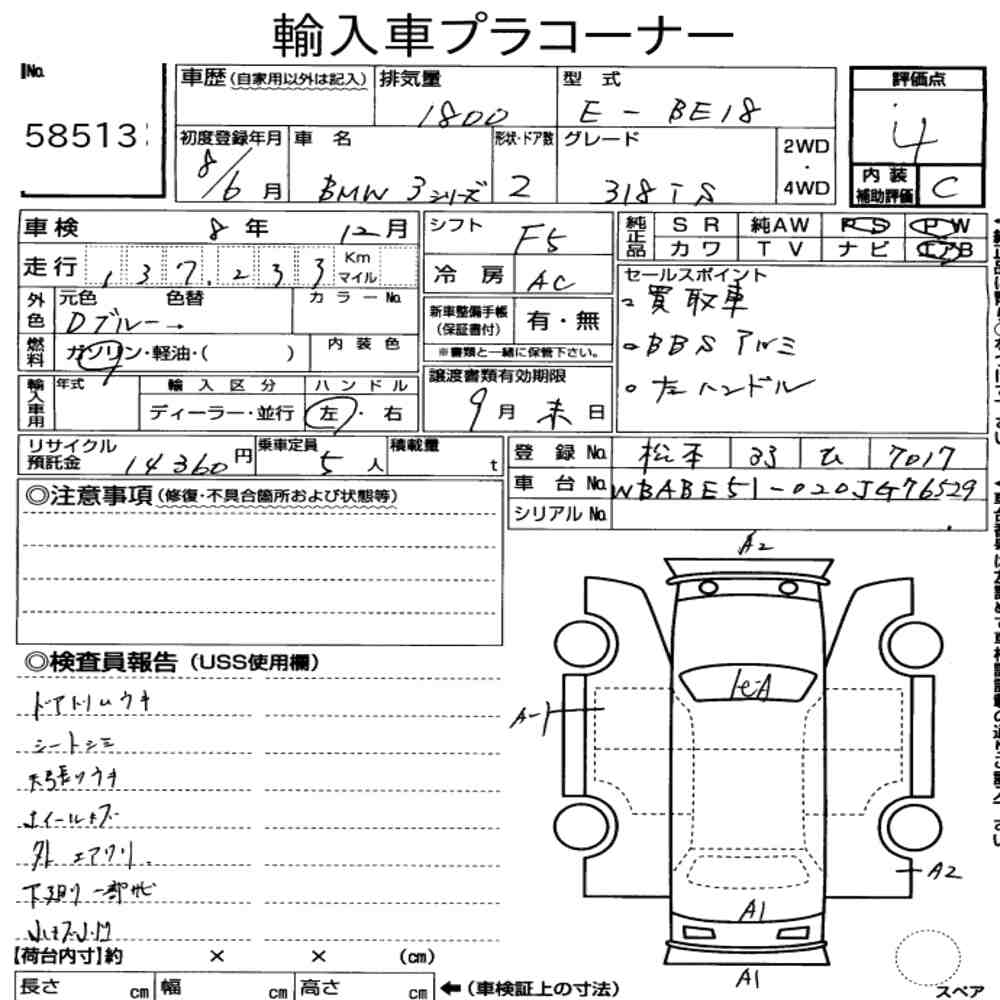 輸入車プラコーナー
No.
58513
車歴(自家用以外は記入)
排気量
1800
型 式
E - BE18
評価点
4
初度登録年月
8/6月
車 名
BMW 3シリーズ
形状・ドア数
2
グレード
318TS
2WD
・
4WD
内 装
補助評価
C
車検 8年 12月
シフト F5
純正品
SR 純AW PS PW
カワ TV ナビ エアB
走行 137,233 Km マイル
冷 房 AC
セールスポイント
○買取車
○BBSアルミ
○左ハンドル
外色
元色 色替
Dブルー→
カラーNo.
新車整備手帳
(保証書付)
有・無
※書類と一緒に保管下さい。
燃料
ガソリン・軽油・( )
内装色
輸入車用
年式
輸入区分
ディーラー・並行
ハンドル
左・右
譲渡書類有効期限
9月末日
リサイクル
預託金
14360円
乗車定員
5人
積載量
t
登録No. 松本 33 ひ 7017
車台No. WBABE51-020JG76529
シリアルNo.
◎注意事項(修復・不具合箇所および状態等)
◎検査員報告(USS使用欄)
ドアトリムウキ
シートシミ
天張りウキ
ホイールキズ
外 エアクリ.
下廻り一部サビ
A2
ヒA
A-1
A2
A1
A1
【荷台内寸】約 × × (cm)
長さ cm 幅 cm 高さ cm
←(車検証上の寸法)
スペア